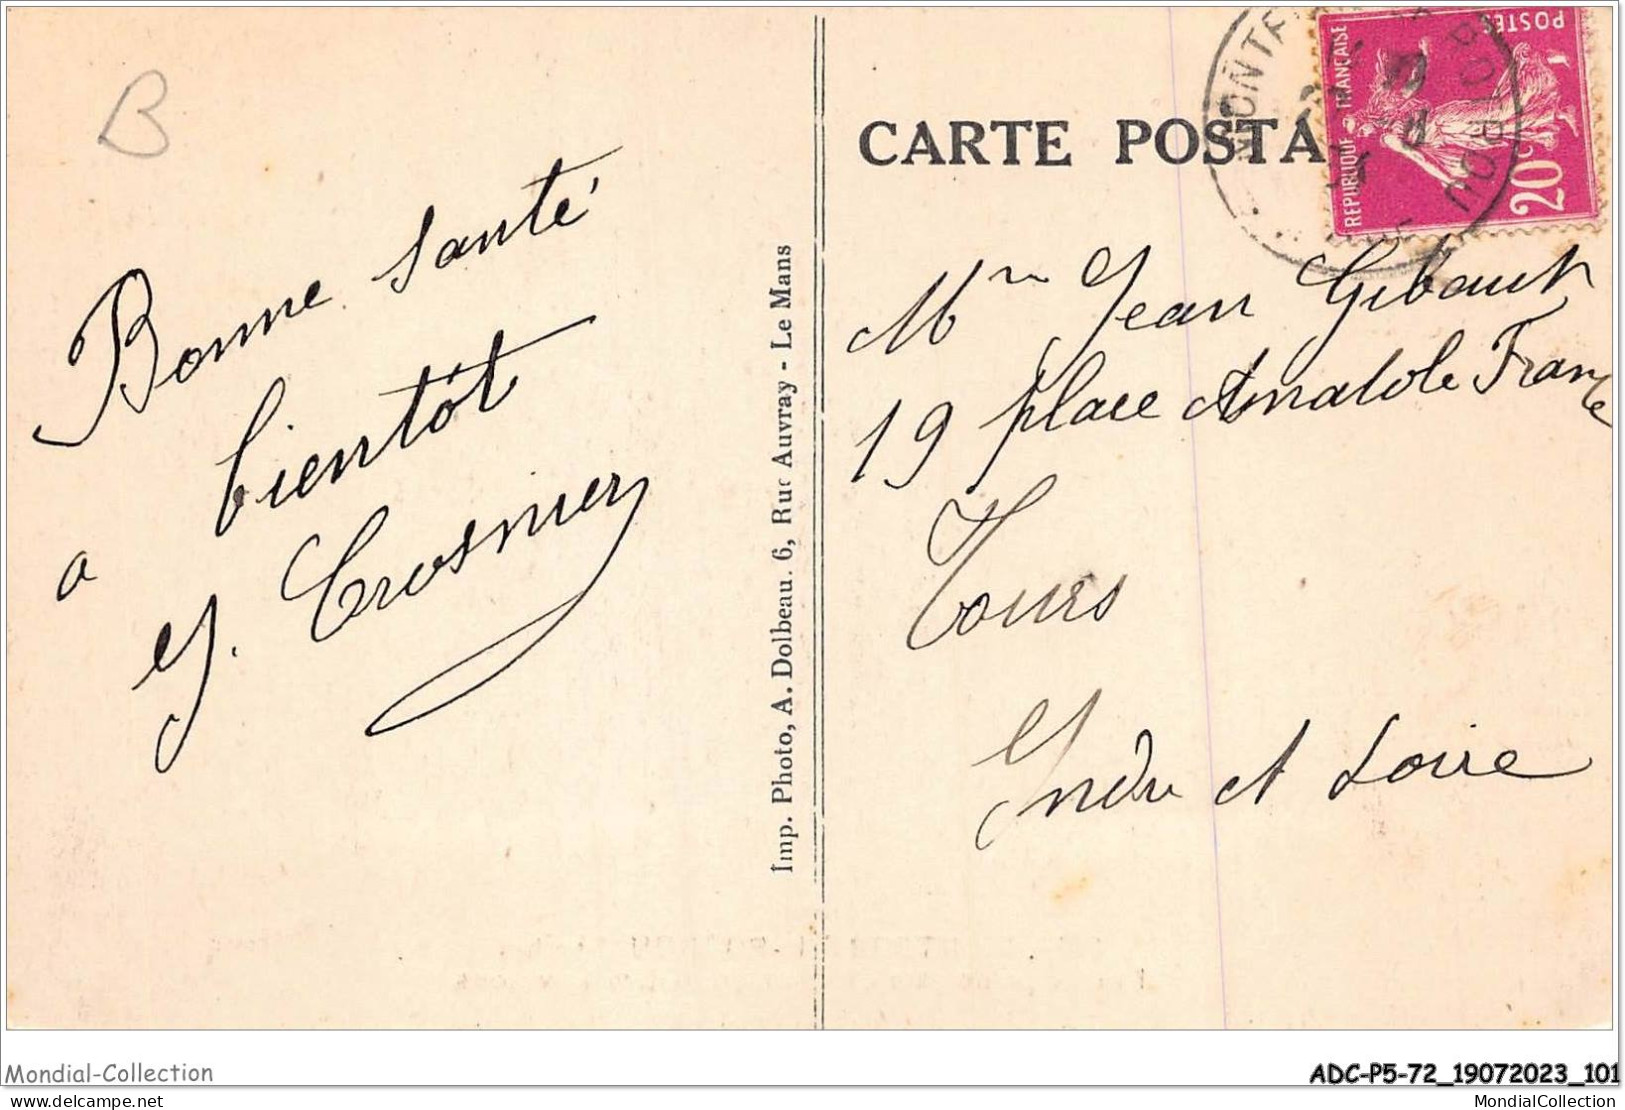 B
Bonne santé
a bientôt
Y. Crosnier
Imp. Photo, A. Dolbeau. 6, Rue Auvray - Le Mans
CARTE POSTA
REPUBLIQUE FRANÇAISE
POSTES
20c
Mr Jean Gibault
19 place Anatole France
Tours
Indre et Loire
Mondial-Collection
ADC-P5-72_19072023_101
delcampe.net
MondialCollection